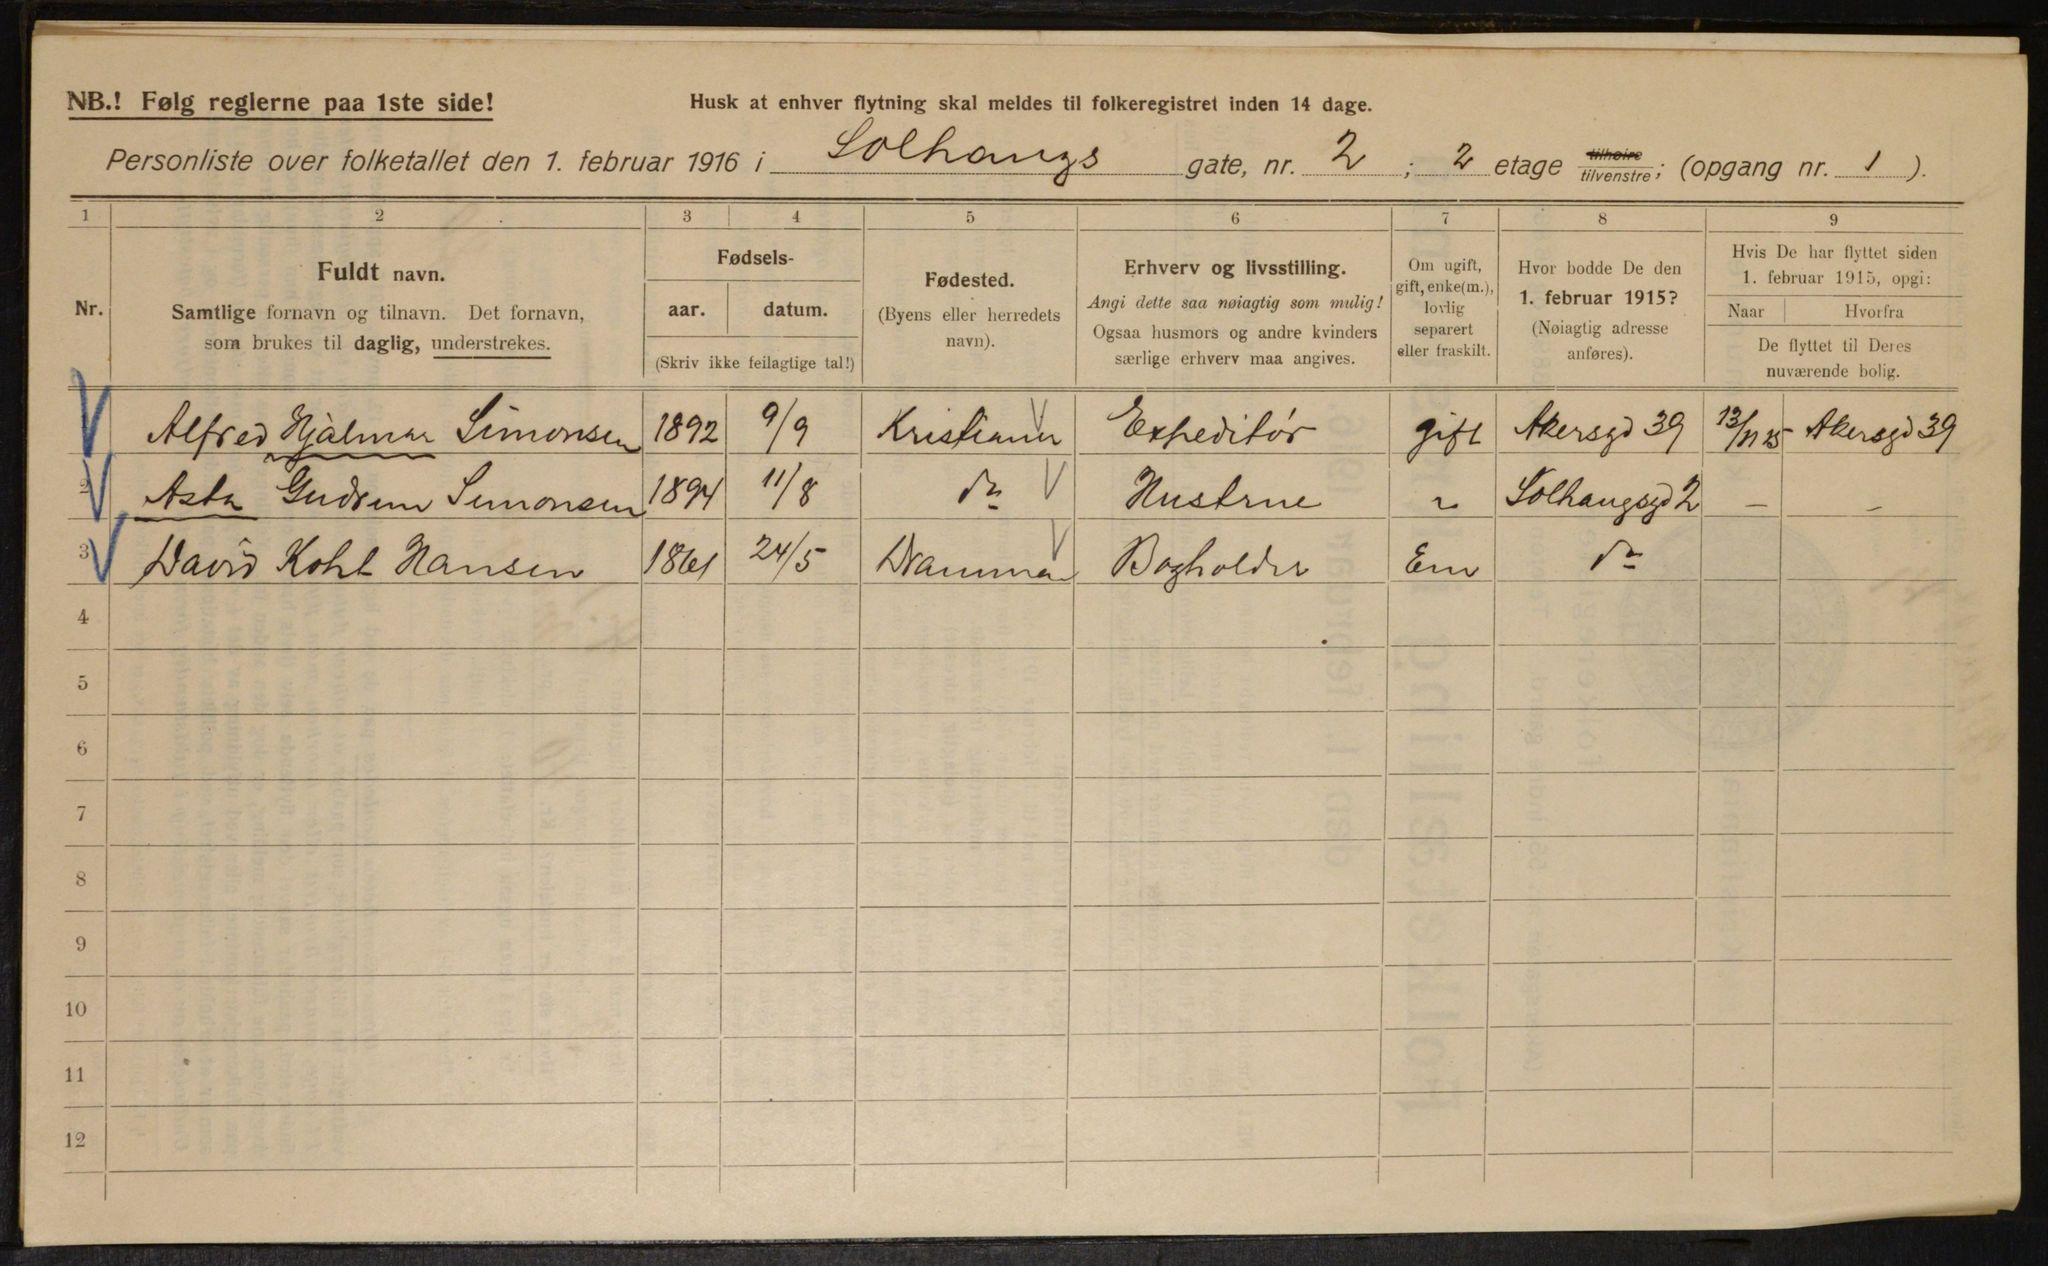 NB.! Følg reglerne paa 1ste side!
Husk at enhver flytning skal meldes til folkeregistret inden 14 dage.
Personliste over folketallet den 1. februar 1916 i Solhaugs gate, nr. 2; 2 etage tilhøire tilvenstre; (opgang nr. 1).
1 2 3 4 5 6 7 8 9
Nr.
Fuldt navn.
Samtlige fornavn og tilnavn. Det fornavn,
som brukes til daglig, understrekes.
Fødsels-
aar. datum.
(Skriv ikke feilagtige tal!)
Fødested.
(Byens eller herredets
navn).
Erhverv og livsstilling.
Angi dette saa nøiagtig som mulig!
Ogsaa husmors og andre kvinders
særlige erhverv maa angives.
Om ugift,
gift, enke(m.),
lovlig
separert
eller fraskilt.
Hvor bodde De den
1. februar 1915?
(Nøiagtig adresse
anføres).
Hvis De har flyttet siden
1. februar 1915, opgi:
Naar Hvorfra
De flyttet til Deres
nuværende bolig.
Alfred Hjalmar Simonsen 1892 9/9 Kristiania Expeditør gift Akersgd 39 13/11 15 Akersgd 39
2 Asta Gudrun Simonsen 1894 11/8 do Hustrue " Solhaugsgd 2 — -
3 David Kohl Hansen 1861 24/5 Drammen Bogholder Em do
4
5
6
7
8
9
10
11
12